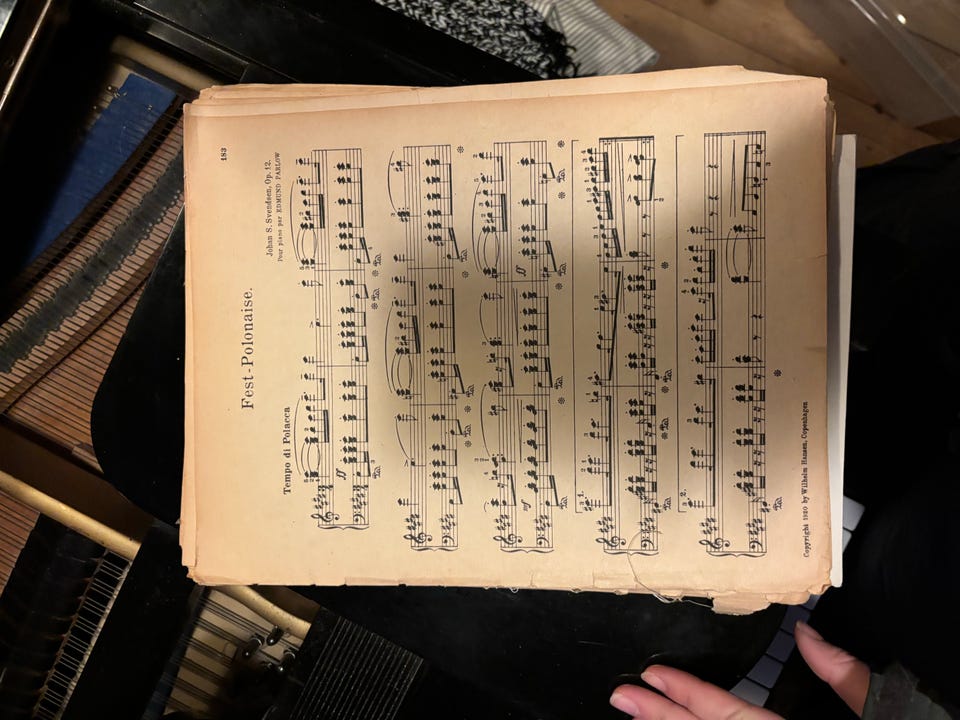 183
Fest-Polonaise.
Johan S. Svendsen, Op. 12.
Pour piano par EDMUND PARLOW
Tempo di Polacca
ff
ff
mf
1.
2.
Copyright 1920 by Wilhelm Hansen, Copenhagen